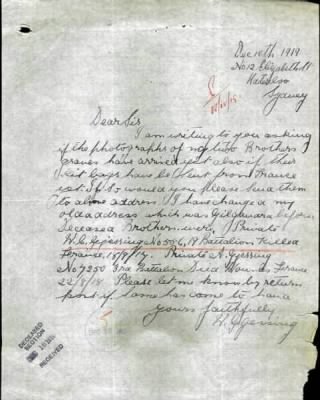 Dec 10th 1919
No 12 Elizabeth St
Waterloo
Sydney
Dear Sir
I am writing to you asking
if the photographs of my two Brothers
graves have arrived yet also if their
kit bags have been sent from France
yet. If so would you please send them
to above address. I have changed my
old address which was Gilgandra before
deceased Brothers were. Private
H. C. Gjessing No 5026, 19 Battalion Killed
France, Private A. Gjessing
No 7250 3rd Battalion Died Wounds France
22/8/18 Please let me know by return
post if same has come to hand
Yours faithfully
H. Gjessing
DECEASED
SECTION
RECEIVED